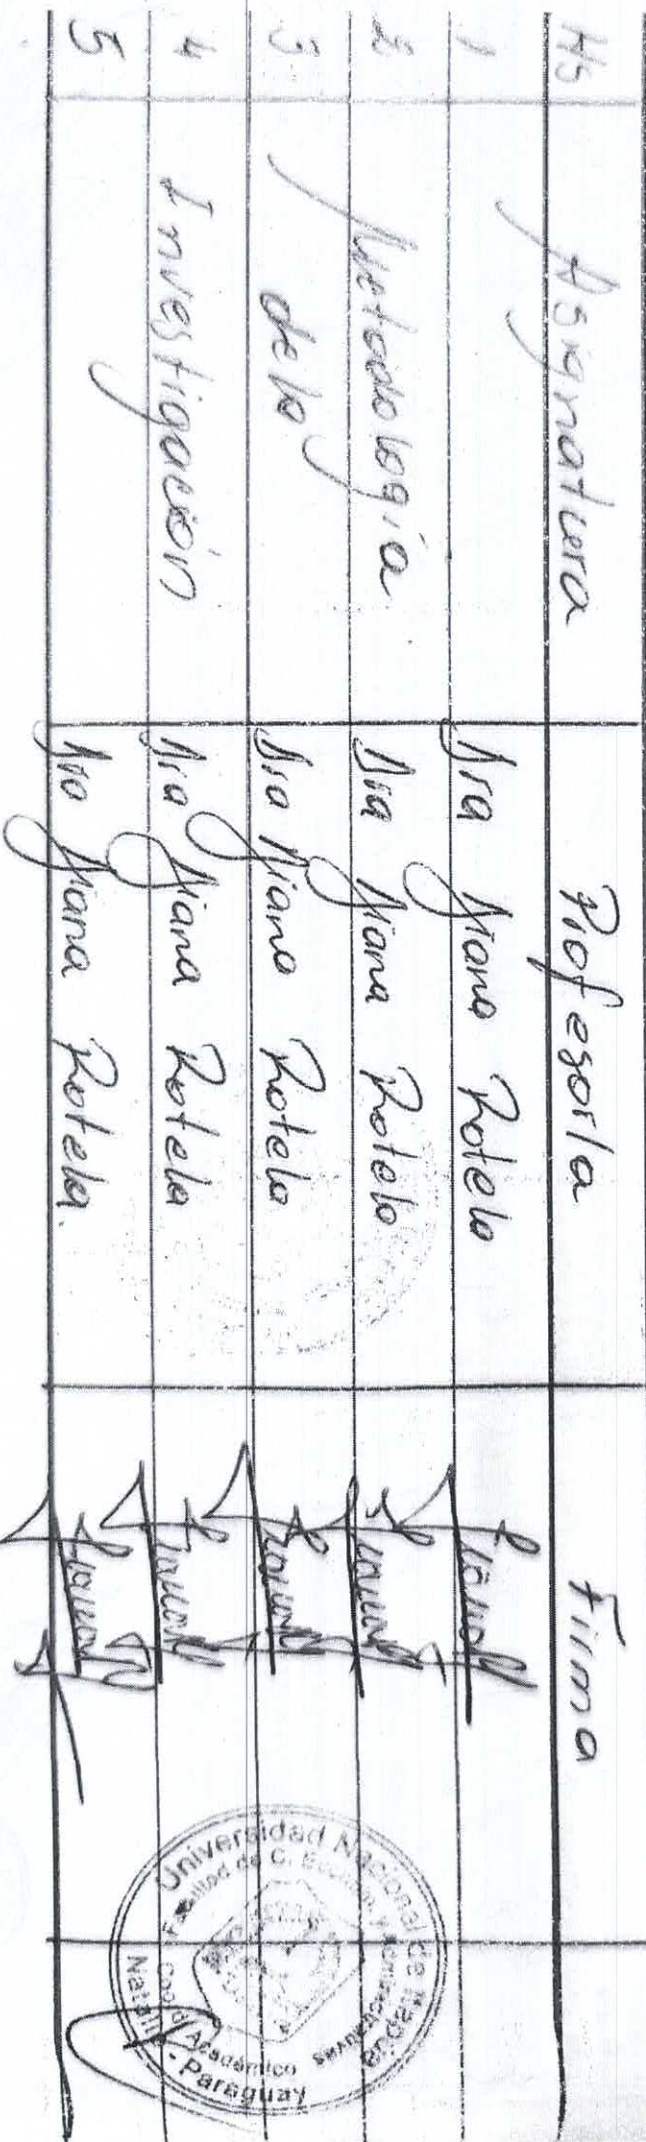 Hs Asignatura Profesor/a Firma
1 Dra Diana Rotela
2 Metodología Dra Diana Rotela
3 de la Dra Diana Rotela
4 Investigación Dra Diana Rotela
5 Dra Diana Rotela
Universidad Nacional de Itapúa
Facultad de C. y Administrativas
Coord. Académico
Natalio - Paraguay